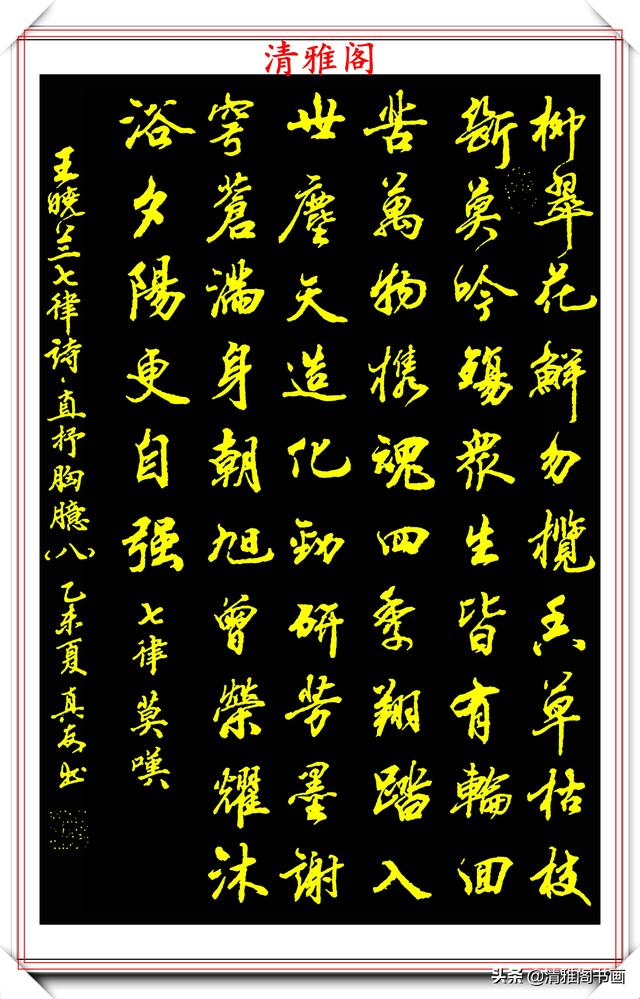 清雅阁
柳翠花鮮勿攬香草枯枝
斷莫吟殤眾生皆有輪回
苦萬物攜魂四季翔踏入
世塵天造化勁研芳墨謝
穹蒼滿身朝旭曾榮耀沐
浴夕陽更自强 七律莫嘆
王曉兰七律詩·直抒胸臆(八) 乙未夏真友書
头条 @清雅阁书画